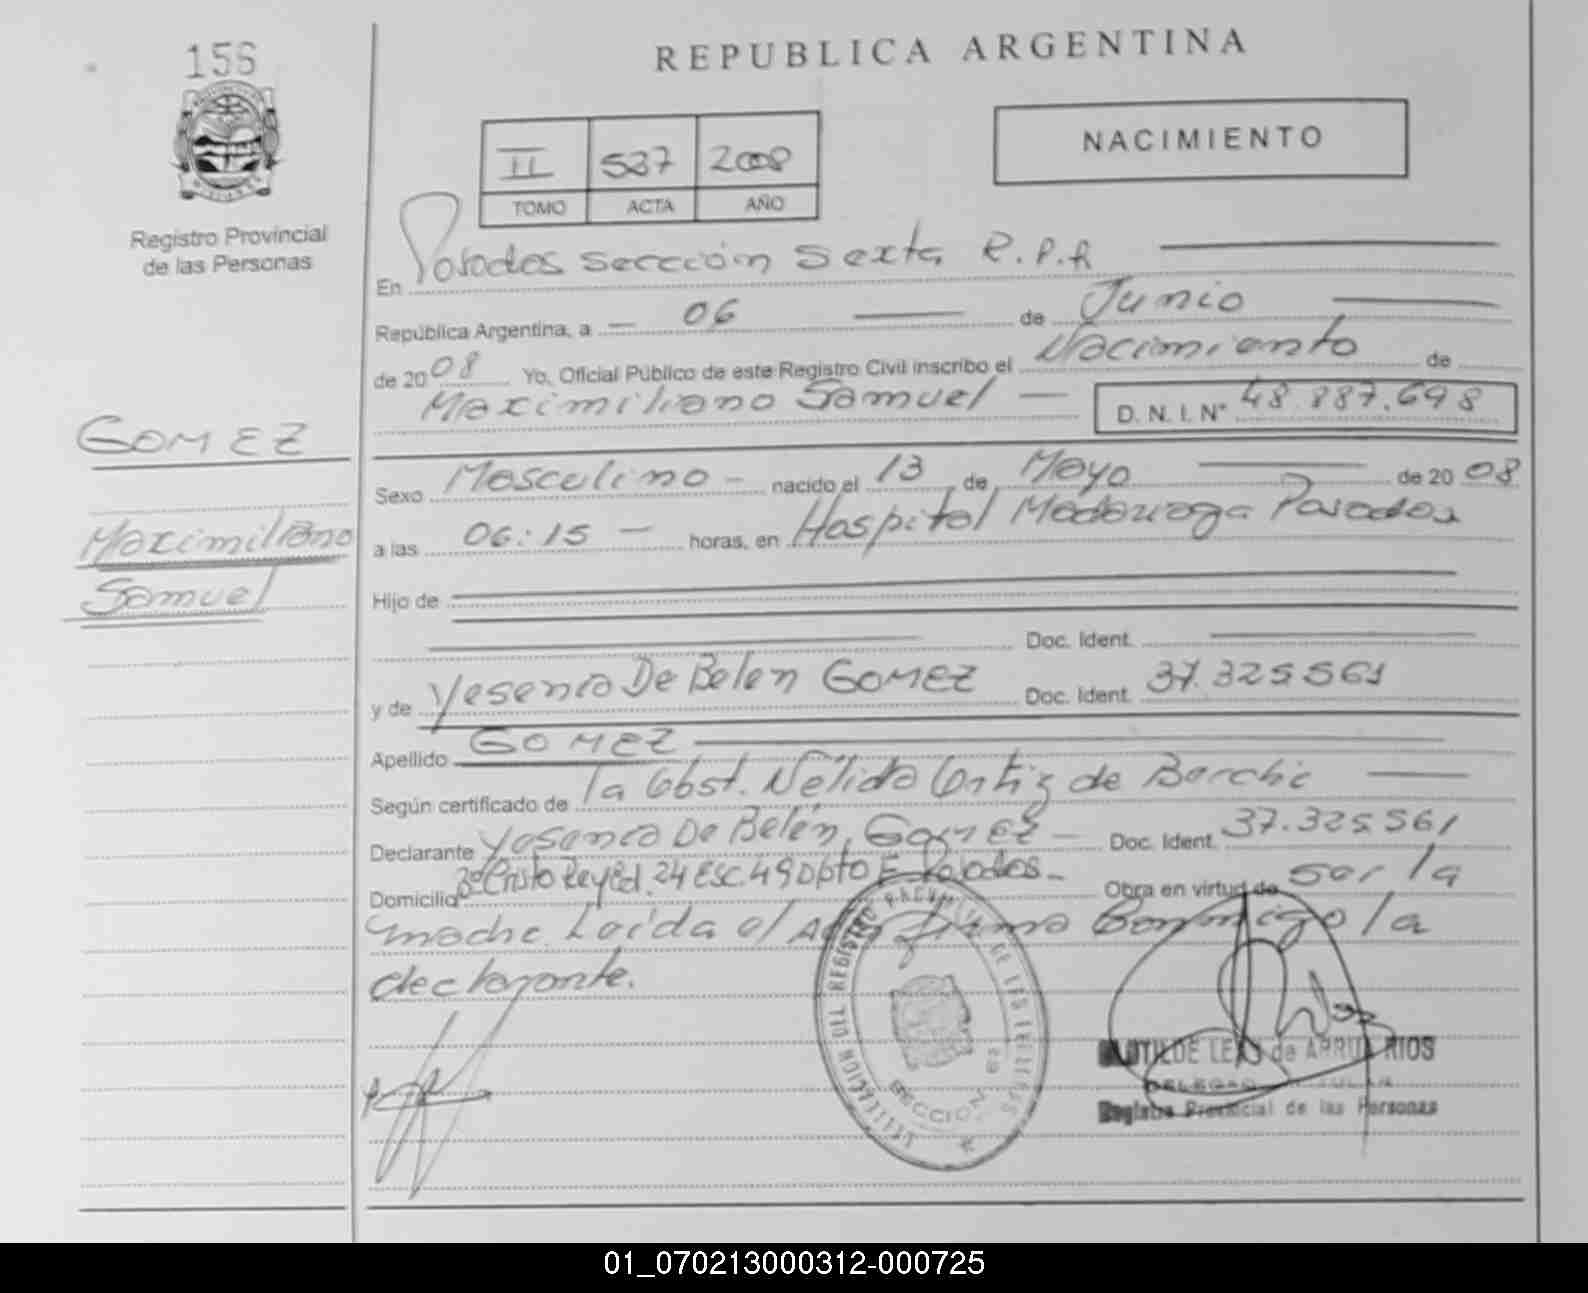 156
REPUBLICA ARGENTINA
NACIMIENTO
II 537 2008
TOMO ACTA AÑO
Registro Provincial
de las Personas
En Posadas sección sexta R.P.P.
República Argentina, a 06 de Junio
de 2008 Yo, Oficial Público de este Registro Civil inscribo el Nacimiento de
Maximiliano Samuel D. N. I. N° 48.887.698
GOMEZ
Maximiliano
Samuel
Sexo Masculino - nacido el 13 de Mayo de 2008
a las 06:15 - horas, en Hospital Madariaga Posadas
Hijo de
Doc. Ident.
y de Yesenia De Belen GOMEZ Doc. Ident. 37.325561
Apellido GOMEZ
Según certificado de la Obst. Nélida Ortiz de Barchi
Declarante Yesenia De Belén Gomez - Doc. Ident. 37.325561
Domicilio Bº Cristo Rey Ed. 24 Esc. 49 Dpto E Posadas - Obra en virtud de ser la
madre. Leida el Acta firma conmigo la
declarante.
DEL REGISTRO PROVINCIAL DE LAS PERSONAS
SECCION 6ª
CLOTILDE de ARRUA RIOS
DELEGADA TITULAR
Registro Provincial de las Personas
01_070213000312-000725